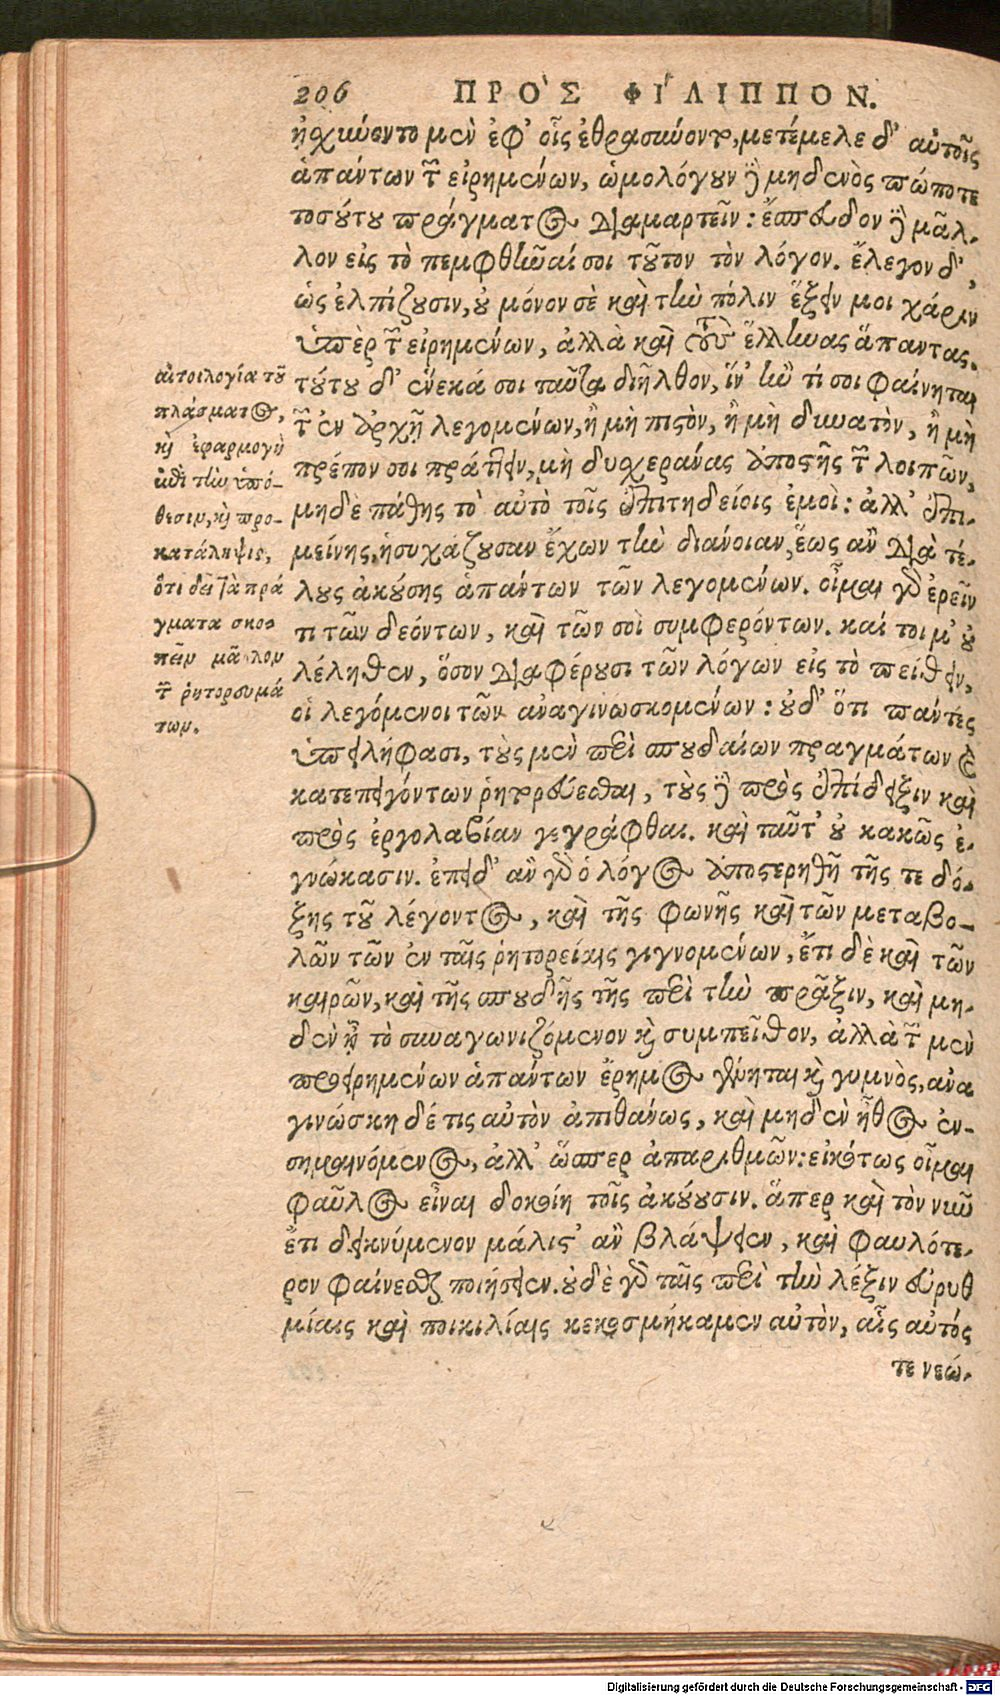 206 ΠΡΟ`Σ ΦΙ´ΛΙΠΠΟΝ.
ᾐσχύνοντο μὲν ἐφ' οἷς ἐθρασύνοντο, μετέμελε δ' αὐτοῖς
ἁπάντων τῶν εἰρημένων, ὡμολόγουν δὲ μηδενὸς πώποτε
τοσούτου πράγματος διαμαρτεῖν: ἔσπευδον δὲ μᾶλ-
λον εἰς τὸ πεμφθῆναί σοι τοῦτον τὸν λόγον. ἔλεγον δ',
ὡς ἐλπίζουσιν, οὐ μόνον σὲ καὶ τὴν πόλιν ἕξειν μοι χάριν
ὑπὲρ τῶν εἰρημένων, ἀλλὰ καὶ τοὺς ἕλληνας ἅπαντας.
τούτου δ' ἕνεκά σοι ταῦτα διῆλθον, ἵν' ἤν τί σοι φαίνηται
τῶν ἐν ἀρχῇ λεγομένων, ἢ μὴ πιστὸν, ἢ μὴ δυνατὸν, ἢ μὴ
πρέπον σοι πράττειν, μὴ δυχεράνας ἀποστῇς τῶν λοιπῶν,
μηδὲ πάθῃς τὸ αὐτὸ τοῖς ἐπιτηδείοις ἐμοί: ἀλλ' ἐπι-
μείνῃς, ἡσυχάζουσαν ἔχων τὴν διάνοιαν, ἕως ἂν διὰ τέ-
λους ἀκούσῃς ἁπάντων τῶν λεγομένων. οἶμαι γὰρ ἐρεῖν
τι τῶν δεόντων, καὶ τῶν σοὶ συμφερόντων. καί τοι μ' οὐ
λέληθεν, ὅσον διαφέρουσι τῶν λόγων εἰς τὸ πείθειν,
οἱ λεγόμενοι τῶν ἀναγινωσκομένων: οὐδ' ὅτι πάντες
ὑπειλήφασι, τοὺς μὲν περὶ σπουδαίων πραγμάτων καὶ
κατεπειγόντων ῥητορεύεσθαι, τοὺς δὲ πρὸς ἐπίδειξιν καὶ
πρὸς ἐργολαβίαν γεγράφθαι. καὶ ταῦτ' οὐ κακῶς ἐ-
γνώκασιν. ἐπειδ' ἂν γὰρ ὁ λόγος ἀποστερηθῇ τῆς τε δό-
ξης τοῦ λέγοντος, καὶ τῆς φωνῆς καὶ τῶν μεταβο-
λῶν τῶν ἐν ταῖς ῥητορείαις γιγνομένων, ἔτι δὲ καὶ τῶν
καιρῶν, καὶ τῆς σπουδῆς τῆς περὶ τὴν πρᾶξιν, καὶ μη-
δὲν ᾖ τὸ συναγωνιζόμενον καὶ συμπεῖθον, ἀλλὰ τῶν μὲν
προειρημένων ἁπάντων ἔρημος γένηται καὶ γυμνὸς, ἀνα
γινώσκῃ δέ τις αὐτὸν ἀπιθάνως, καὶ μηδὲν ἦθος ἐν-
σημαινόμενος, ἀλλ' ὥσπερ ἀπαριθμῶν: εἰκότως οἶμαι
φαῦλος εἶναι δοκοίη τοῖς ἀκούουσιν. ἅπερ καὶ τὸν νῦν
ἔτι δεικνύμενον μάλιστ' ἂν βλάψειεν, καὶ φαυλότε-
ρον φαίνεσθαι ποιήσειεν. οὐδὲ γὰρ ταῖς περὶ τὴν λέξιν εὐρυθ
μίαις καὶ ποικιλίαις κεκοσμήκαμεν αὐτὸν, αἷς αὐτός
τε νεώ-
αἰτιολογία τοῦ
πλάσματος,
καὶ ἐφαρμογὴ
ἐπὶ τὴν ὑπό-
θεσιν, καὶ προ-
κατάληψις,
ὅτι δεῖ τὰ πρά
γματα σκο-
πεῖν μᾶλλον
τῶν ῥητορευμά
των.
Digitalisierung gefördert durch die Deutsche Forschungsgemeinschaft - DFG